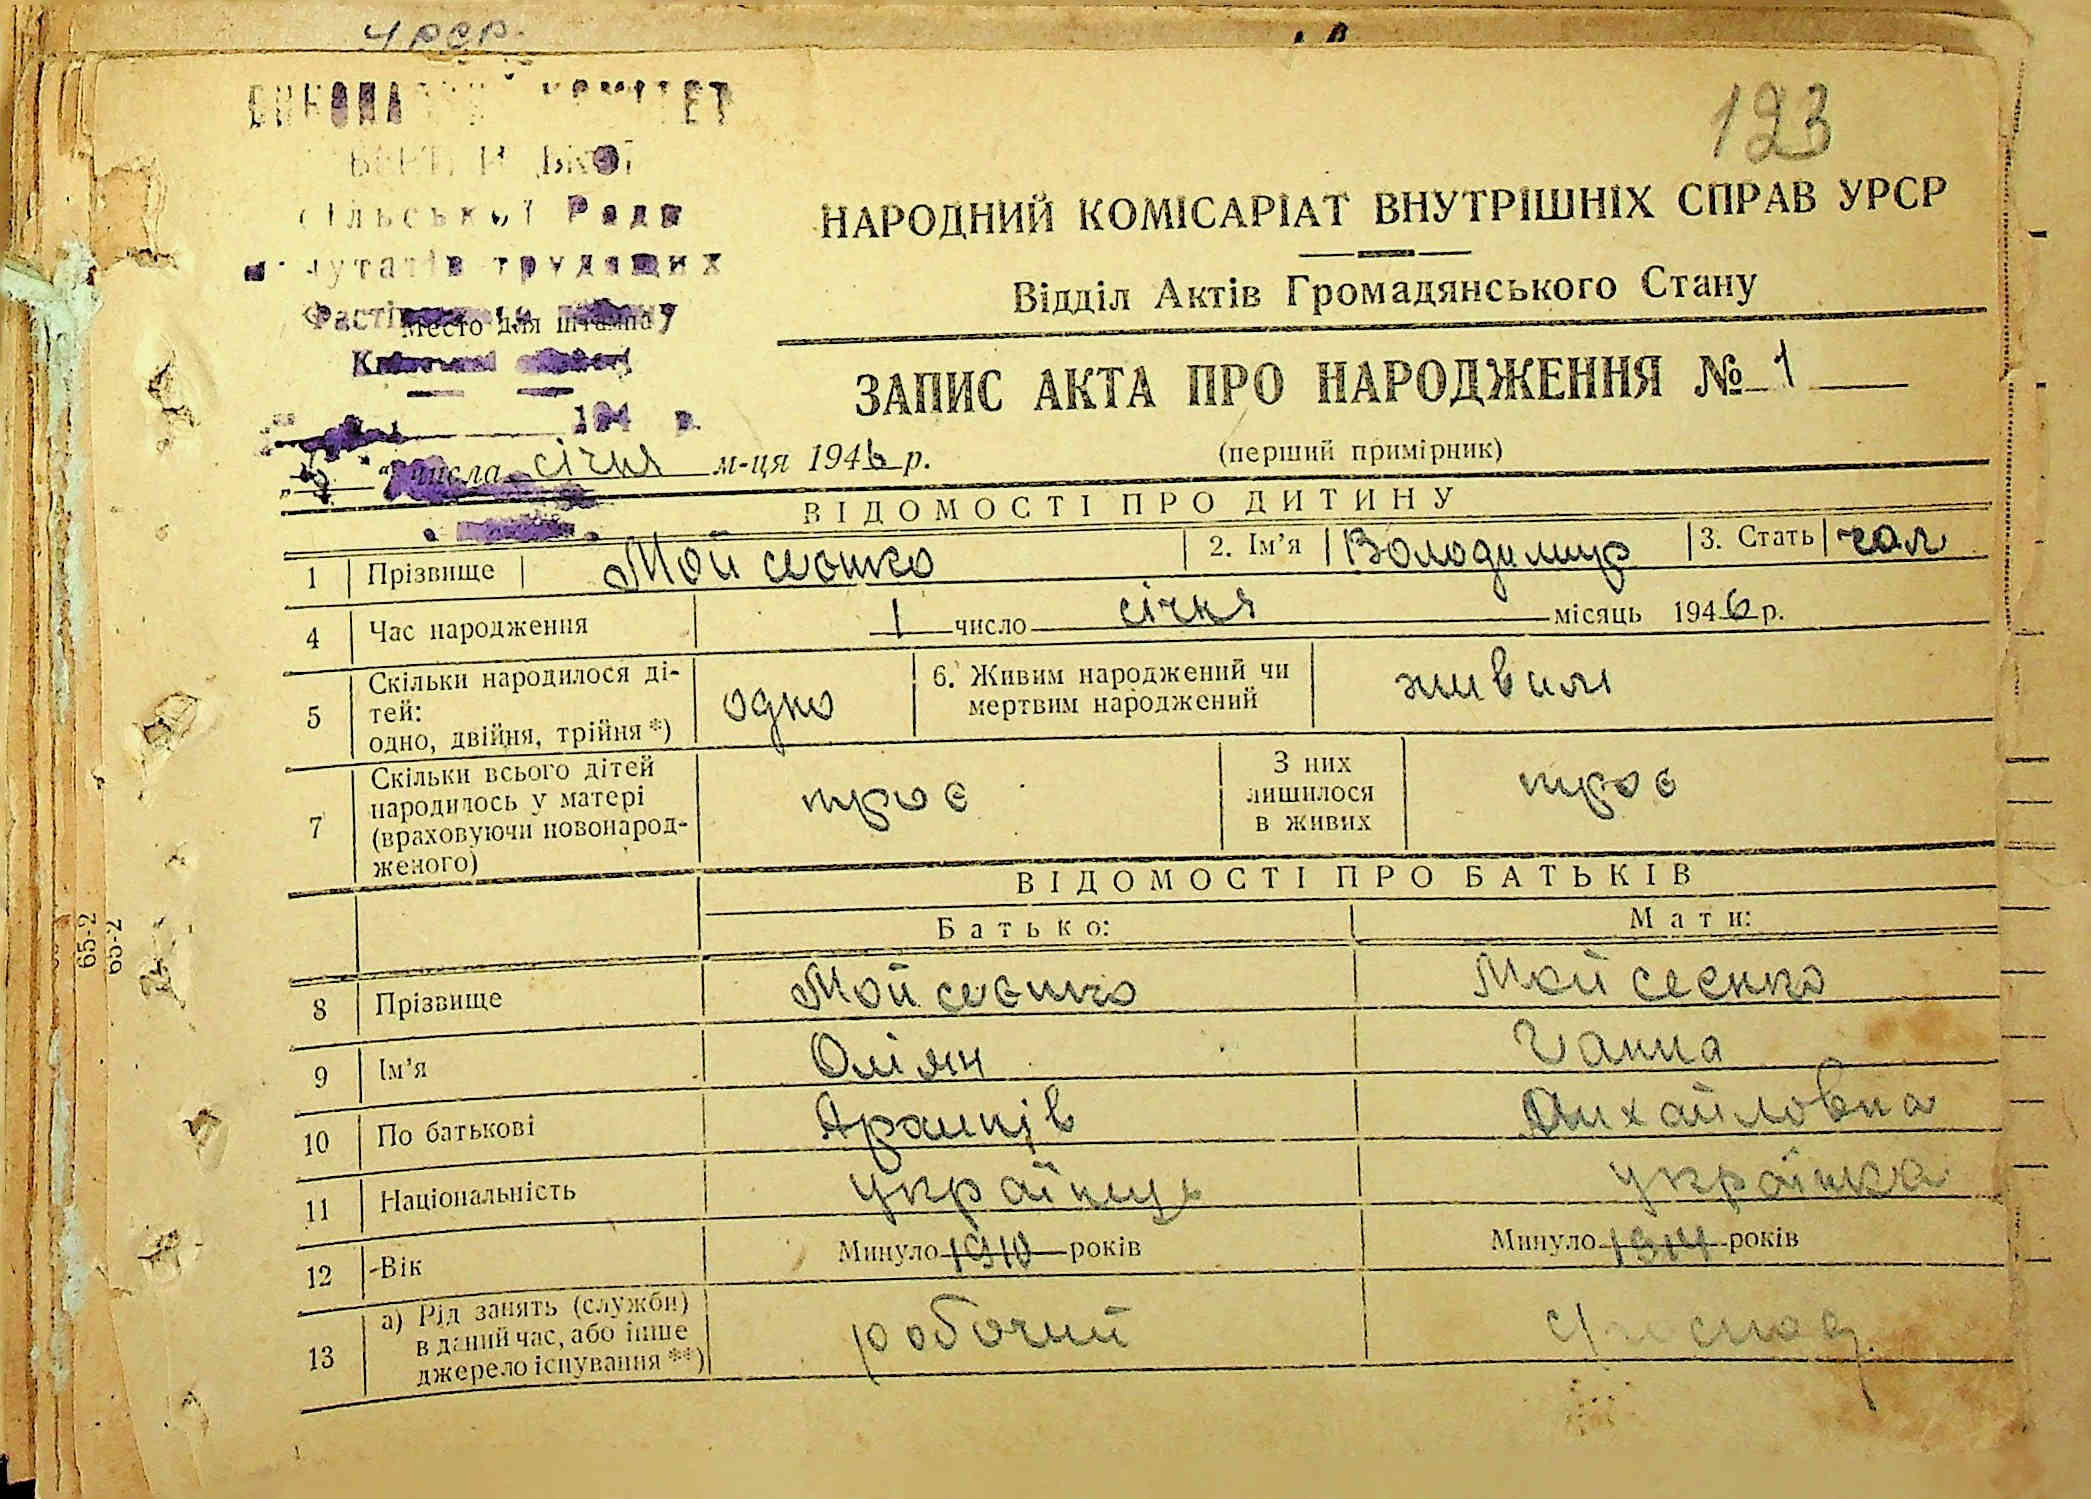 УРСР.
123
сільської Ради
трудящих
Место для штампа
194 р.
НАРОДНИЙ КОМІСАРІАТ ВНУТРІШНІХ СПРАВ УРСР
Відділ Актів Громадянського Стану
ЗАПИС АКТА ПРО НАРОДЖЕННЯ № 1
(перший примірник)
„5“ числа січня м-ця 1946 р.
ВІДОМОСТІ ПРО ДИТИНУ
1 Прізвище Мойсеєнко 2. Ім’я Володимир 3. Стать чол
4 Час народження 1 число січня місяць 1946 р.
5 Скільки народилося ді-
тей:
одно, двійня, трійня *)
одно
6. Живим народжений чи
мертвим народжений
живим
7 Скільки всього дітей
народилось у матері
(враховуючи новонарод-
женого)
троє
З них
лишилося
в живих
троє
ВІДОМОСТІ ПРО БАТЬКІВ
Батько: Мати:
8 Прізвище Мойсеєнко Мойсеєнко
9 Ім’я Оліян Ганна
10 По батькові Михайловна
11 Національність українець українка
12 Вік Минуло 1910 років Минуло 1914 років
13 а) Рід занять (служби)
в даний час, або інше
джерело існування **)
робочий
65-2
65-2